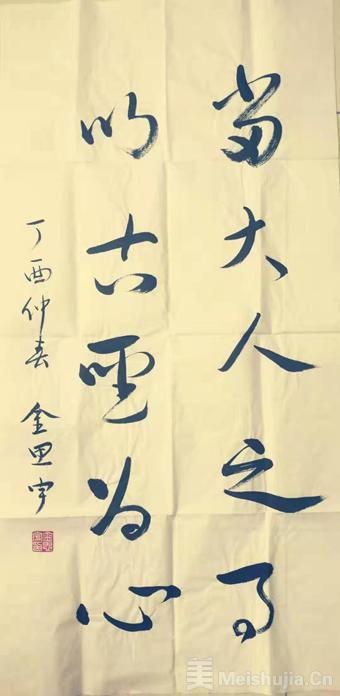 當大人之事
以古聖为心
丁酉仲春 金思宇
美 Meishujia.Cn